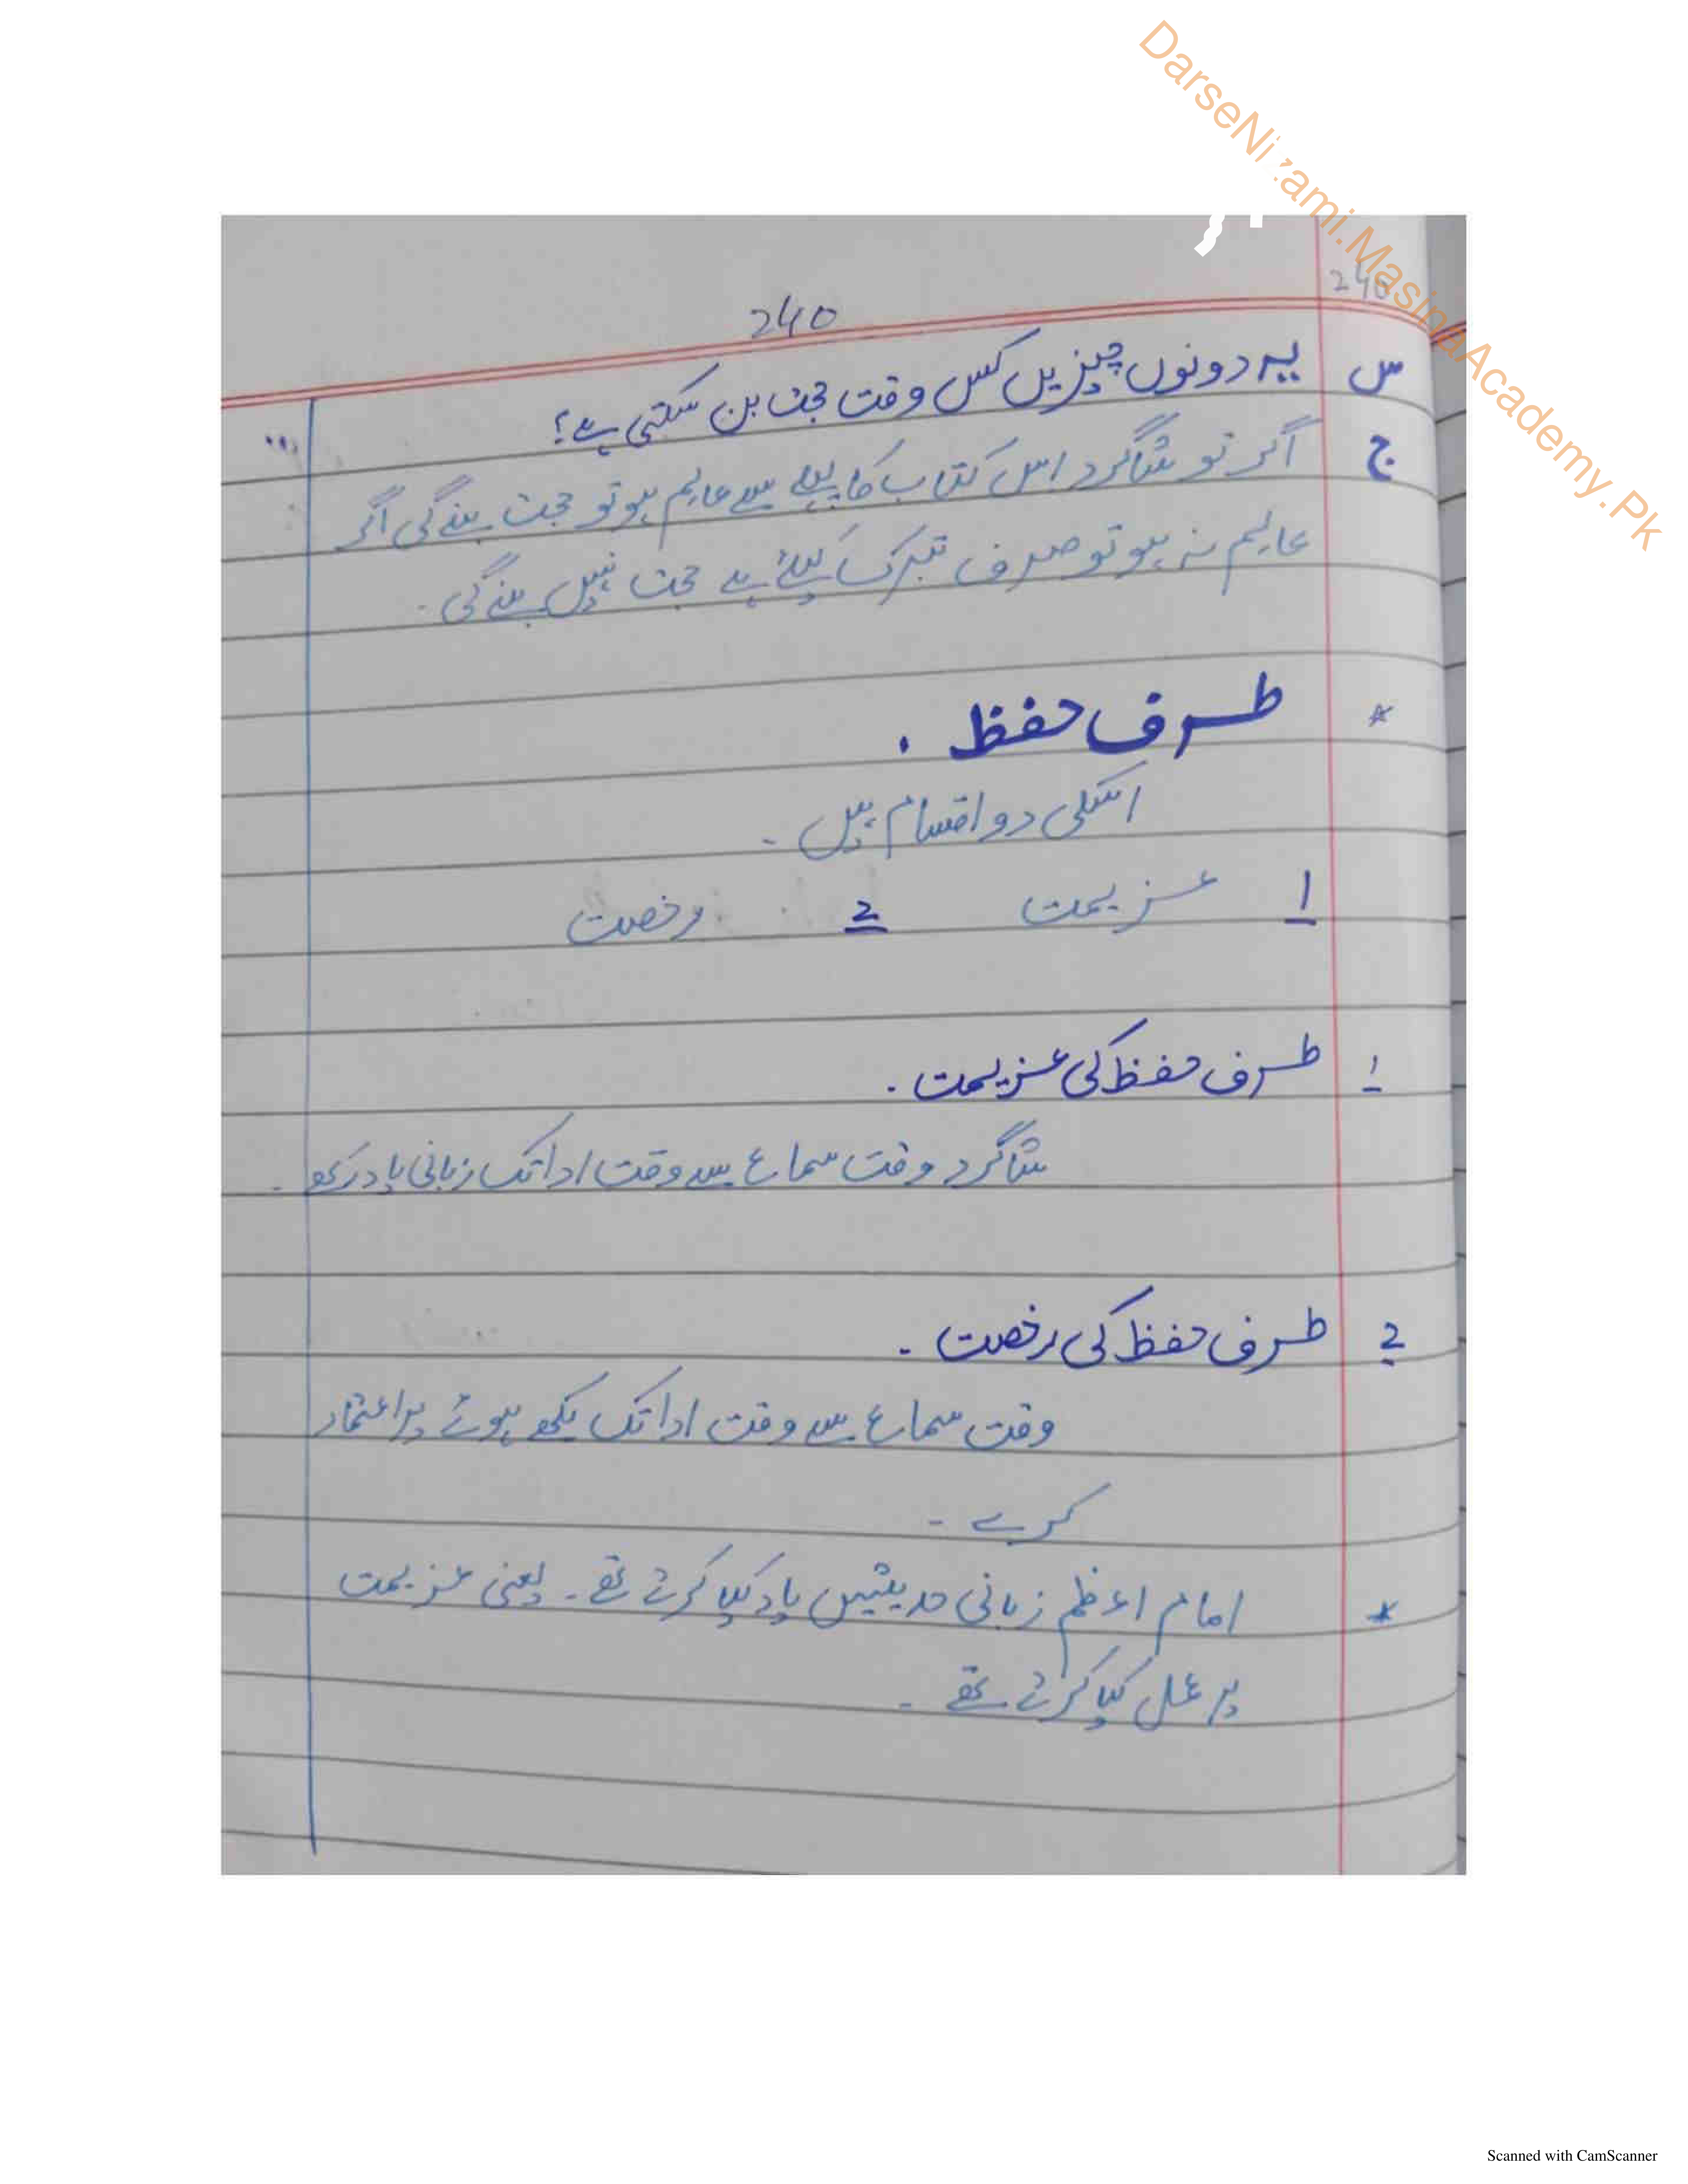 DarseNizami.MasinaAcademy.Pk
240
240
س یہ دونوں چیزیں کس وقت حجت بن سکتی ہے؟
ج اگر تو شاگرد اس کتاب کا پہلے سے عالم ہو تو حجت بنے گی اگر
عالم نہ ہو تو صرف تبرک کیلئے ہے حجت نہیں بنے گی۔
* طرف حفظ .
اسکی دو اقسام ہیں ۔
1 عزیمت 2 رخصت
1 طرف حفظ کی عزیمت .
شاگرد وقت سماع سے وقت ادا تک زبانی یاد رکھے ۔
2 طرف حفظ کی رخصت ۔
وقت سماع سے وقت ادا تک لکھے ہوئے پر اعتماد
کرے ۔
* امام اعظم زبانی حدیثیں یاد کیا کرتے تھے ۔ یعنی عزیمت
پر عمل کیا کرتے تھے ۔
Scanned with CamScanner